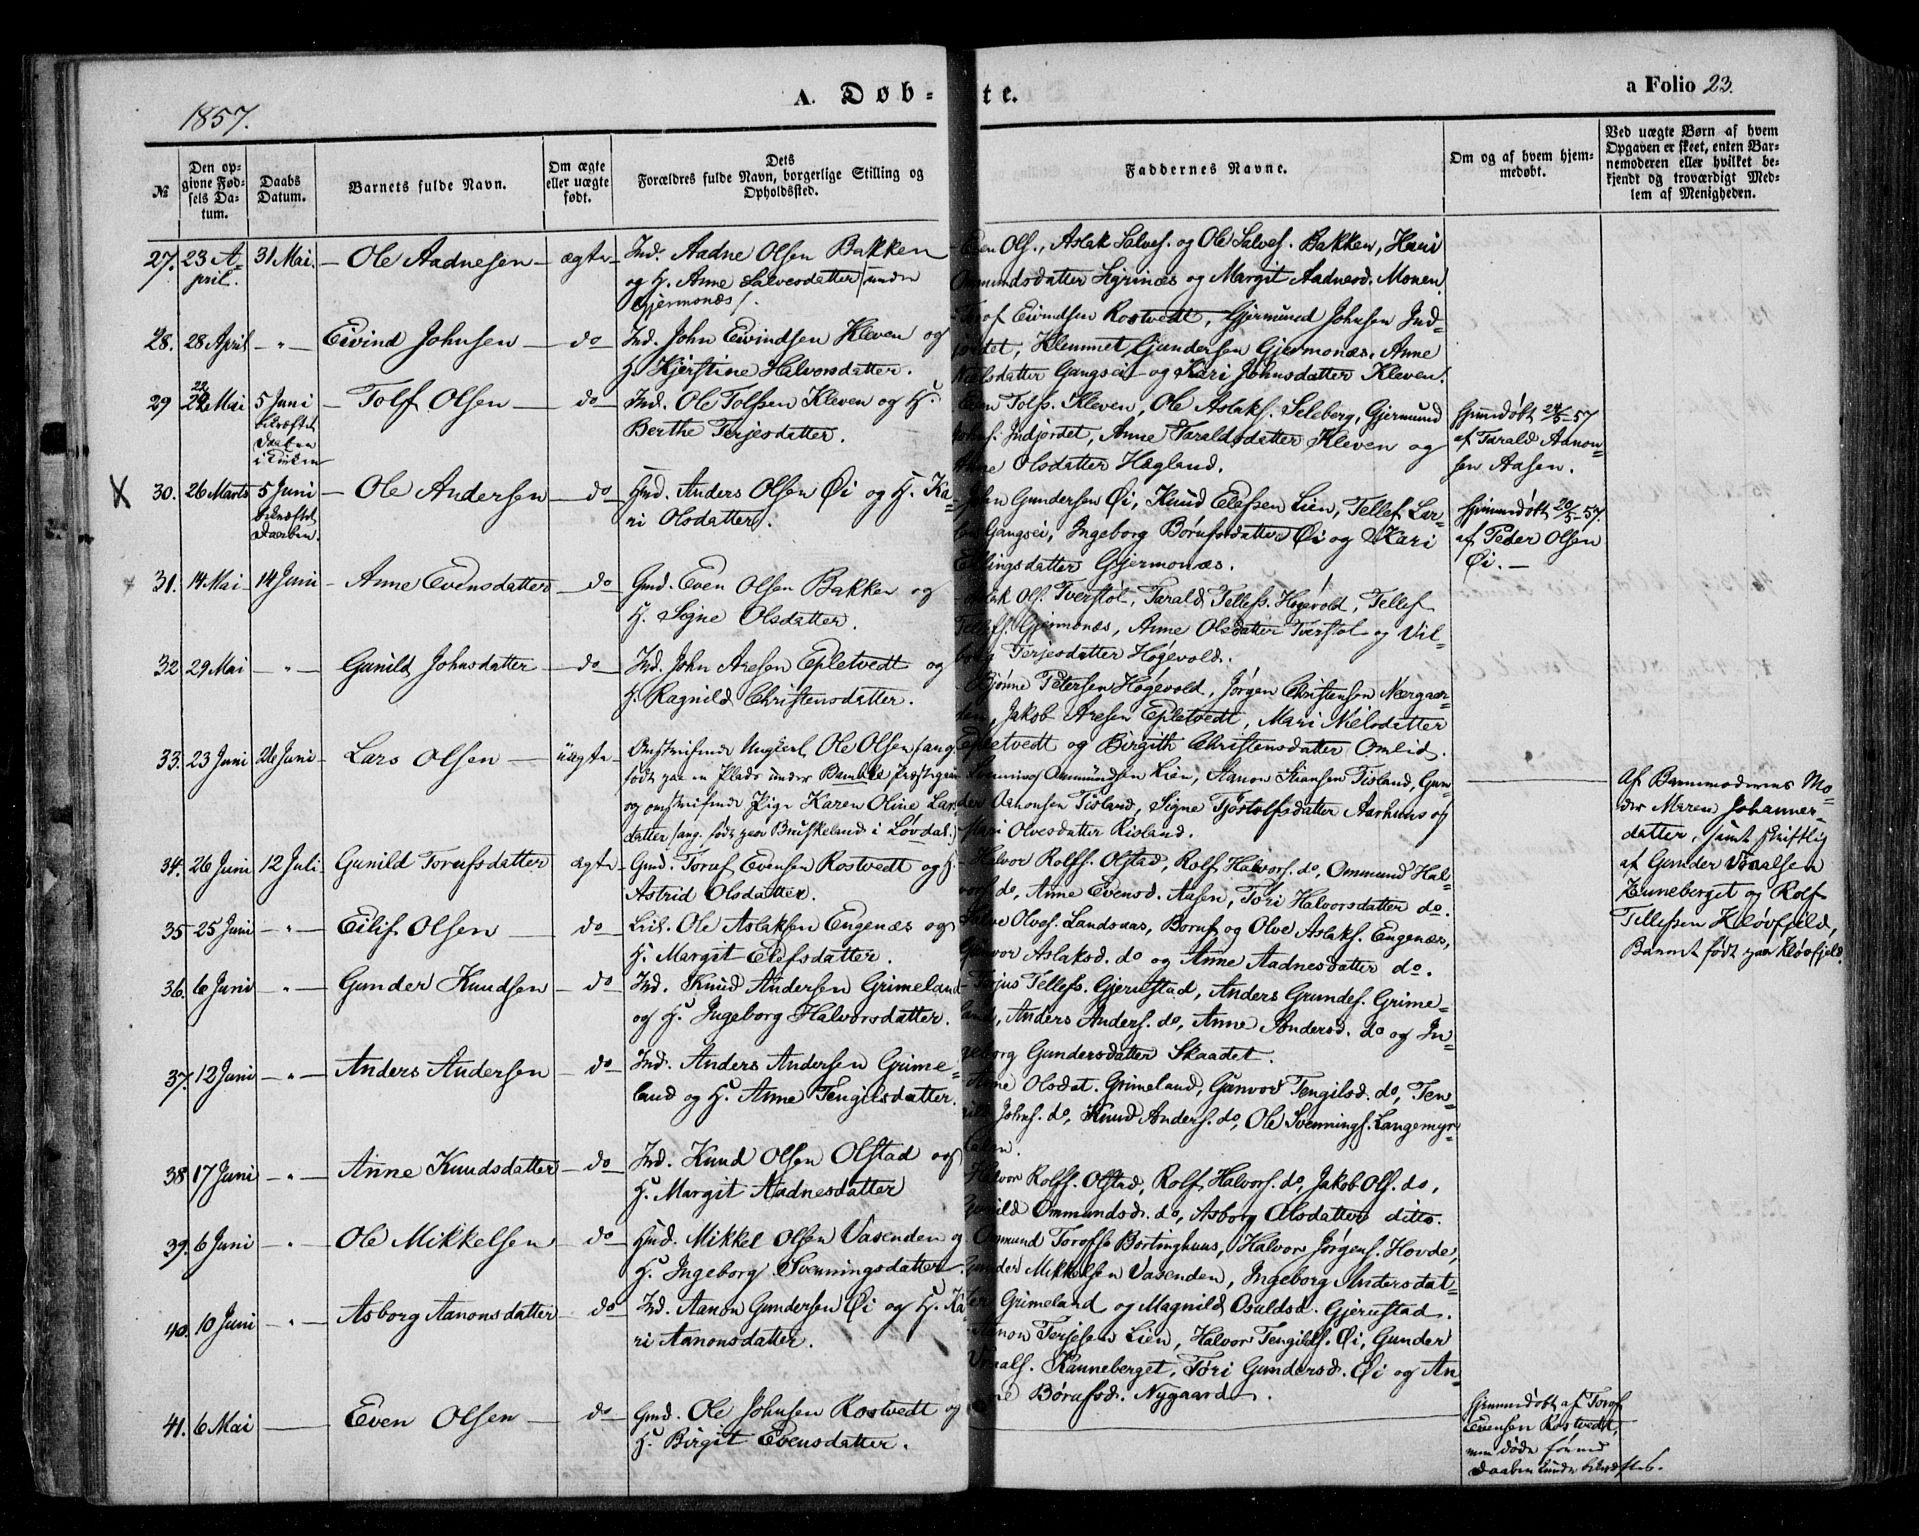 1857.
A. Døb-te.
a Folio 23.
№
Den opgivne Fødsels Datum.
Daabs Datum.
Barnets fulde Navn.
Om ægte eller uægte født.
Dets Forældres fulde Navn, borgerlige Stilling og Opholdssted.
Faddernes Navne.
Om og af hvem hjemmedøbt.
Ved uægte Børn af hvem Opgaven er skeet, enten Barnemoderen eller hvilket bekjendt og troværdigt Medlem af Menigheden.
27. 23 April. 31 Mai. – Ole Aadnesen – ægte
Ind. Aadne Olsen Bakken
og H. Anne Salvesdatter /under
Gjermonæs/.
Even Ols., Aslak Salves. og Ole Salves. Bakken, Kari
Ommundsdatter Igrinæs og Margit Aadnesd. Monen.
28. 28 April – " – Eivind Johnsen – do
Ind. John Eivindsen Kleven og
H. Kjerstine Halvorsdatter.
Torof Eivindsen Rostvedt, Gjermund Johnsen Ind-
jordet, Klemmet Gundersen Gjermonæs, Anne
Nilsdatter Gangsei og Kari Johnsdatter Kleven.
29 22 Mai 5 Juni bekræftet Daaben i Kirken – Tolf Olsen – do
Ind. Ole Tolfsen Kleven og H.
Berthe Terjesdatter.
Even Tolfs. Kleven, Ole Aslaks. Seleberg, Gjermund
Johns. Indjordet, Anne Taraldsdatter Kleven og
Anne Olsdatter Hægland.
Hjemmedøbt 24/5-57
af Tarald Aanon-
sen Aasen.
X 30. 26 Marts 5 Juni bekræftet Daaben. – Ole Andersen – do
Hmd. Anders Olsen Øi og H. Ka-
ri Olsdatter.
John Gundersen Øi, Knud Elefsen Lien, Tellef Lar-
sen Gangsei, Ingeborg Børufsdatter Øi og Kari
Ellingsdatter Gjermonæs.
Hjemmedøbt 20/5-57.
af Peder Olsen
Øi. –
31. 14 Mai – 14 Juni – Anne Evensdatter – do
Gmd. Even Olsen Bakken og
H. Signe Olsdatter.
Aslak Ols. Tverstøl, Tarald Tellefs. Høgevold, Tellef
Tellefs. Gjermonæs, Anne Olsdatter Tverstøl og Vil-
borg Terjesdatter Høgevold.
32 29 Mai – " – Gunild Johnsdatter – do
Ind. John Aresen Epletvedt og
H. Ragnild Christensdatter.
Bjønne Petersen Høgevold, Jørgen Christensen Nærgaar-
den, Jakob Aresen Epletvedt, Mari Nilsdatter
Epletvedt og Birgith Christensdatter Omlid.
33. 23 Juni 24 Juni – Lars Olsen – uægte
Omstreifende Ungkarl Ole Olsen /ang.
født paa en Plads under Bamble Præstegjeld
og omstreifende Pige Karen Oline Lars-
datter /ang. født paa Bruskeland i Løvdal/.
Svenning Ommundsen Lien, Aanon Stiansen Tisland, Gun-
der Aanonsen Tisland, Signe Tjøstolfsdatter Aarhuus og
Mari Olvesdatter Risland.
Af Barnemoderens Mo-
der Maren Johanner-
datter, samt skriftlig
af Gunder Vraalsen
Kanneberget og Rolf
Tellefsen Kløvfjeld,
Barnet født paa Kløvfjeld.
34. 26 Juni 12 Juli – Gunild Torufsdatter ægte
Gmd. Toruf Evensen Rostvedt og H.
Astrid Olsdatter.
Halvor Rolfs. Olstad, Rolf Halvors. do, Ommund Hal-
vors. do, Anne Evensd. Aasen, Tori Halvorsdatter do.
35 25 Juni – " – Eilif Olsen – do
Leil. Ole Aslaksen Engenæs og
H. Margit Elefsdatter.
Salve Olves. Landsnas, Boruf og Olve Aslaks. Engenæs,
Gunvor Aslaksd. do og Anne Aadnesdatter do.
36. 6 Juni – " – Gunder Knudsen – do
Ind. Knud Andersen Grimeland
og H. Ingeborg Halvorsdatter.
Torjus Tellefs. Gjerustad, Anders Grundes. Grime-
land, Anders Anders. do, Anne Andersd. do og In-
geborg Gundersdatter Skaadet.
37. 12 Juni – " – Anders Andersen – do
Ind. Anders Andersen Grime-
land og H. Anne Tengilsdatter.
Anne Olsdat. Grimeland, Gunvor Tengilsd. do, Ten-
gils Johns. do, Knud Anders. do, Ole Svennings. Langemyr-
kalen.
38 17 Juni – " – Anne Knudsdatter – do
Ind. Knud Olsen Olstad og
H. Margit Aadnesdatter
Halvor Rolfs. Olstad, Rolf Halvors. do, Jakob Ols. do,
Gunild Ommundsd. do, Asborg Olsdatter ditto.
39. 6 Juni – " – Ole Mikkelsen – do
Hmd. Mikkel Olsen Vasenden og
H. Ingeborg Svenningsdatter.
Ommund Torofse Bortinghuus, Halvor Jørgens. Hovde,
Gunder Mikkelsen Vasenden, Ingeborg Andersdat-
ter Grimeland og Magnild Osuldsd. Gjerustad.
40. 10 Juni – " – Asborg Aanonsdatter do
Ind. Aanon Gundersen Øi og H. Ka-
ri Aanonsdatter.
Aanon Terjesen Lien, Halvor Tengilds. Øi, Gunder
Vraals. Kanneberget, Tori Gundersd. Øi og An-
ne Børufsd. Nygaard.
41. 6 Mai – Even Olsen – do
Gmd. Ole Johnsen Rostvedt og
H. Birgit Evensdatter.
Hjemmedøbt af Torof
Evensen Rostvedt,
men døde førend
Daaben kunde bekræftes.